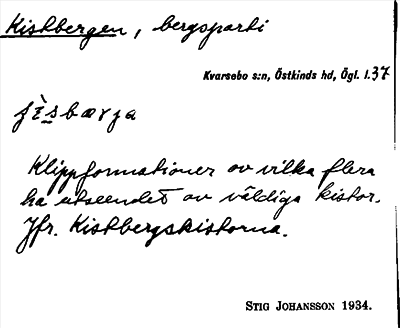 Kistbergen, bergsparti
Kvarsebo s:n, Östkinds hd, Ögl. l. 37
Klippformationer av vilka flera
ha utseendet av väldiga kistor.
Jfr. Kistbergskistorna.
STIG JOHANSSON 1934.